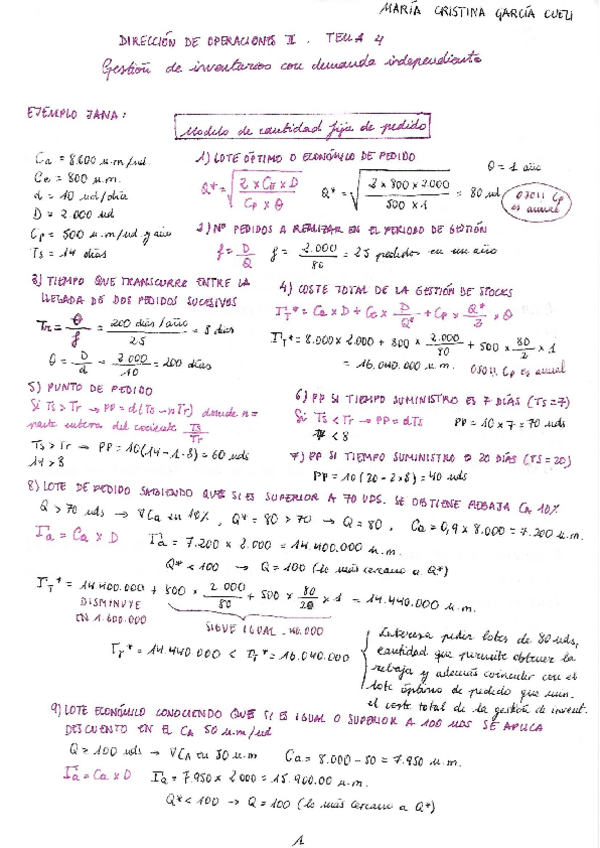 MARÍA CRISTINA GARCÍA CUELI
DIRECCIÓN DE OPERACIONES II. TEMA 4
Gestión de inventarios con demanda independiente
EJEMPLO JANA:
Modelo de cantidad fija de pedido
Ca = 8.000 u.m/ud.
Ce = 800 u.m.
d = 10 ud/día
D = 2.000 ud
Cp = 500 u.m/ud y año
Ts = 14 días
1) LOTE ÓPTIMO O ECONÓMICO DE PEDIDO
θ = 1 año
Q* = √(2 x CE x D / Cp x θ) Q* = √(2 x 800 x 2.000 / 500 x 1) = 80 ud
OJO!! Cp es anual
2) Nº PEDIDOS A REALIZAR EN EL PERIODO DE GESTIÓN
f = D/Q f = 2.000/80 = 25 pedidos en un año
3) TIEMPO QUE TRANSCURRE ENTRE LA
LLEGADA DE DOS PEDIDOS SUCESIVOS
Tr = θ/f = 200 días/año / 25 = 8 días
θ = D/d = 2.000/10 = 200 días
4) COSTE TOTAL DE LA GESTIÓN DE STOCKS
ΓT* = Ca x D + CE x D/Q* + Cp x Q*/2 x θ
ΓT* = 8.000 x 2.000 + 800 x 2.000/80 + 500 x 80/2 x 1
= 16.040.000 u.m. OJO!! Cp es anual
5) PUNTO DE PEDIDO
Si Ts > Tr → PP = d(Ts - nTr) donde n =
parte entera del cociente Ts/Tr
Ts > Tr → PP = 10(14 - 1·8) = 60 uds
14 > 8
6) PP SI TIEMPO SUMINISTRO ES 7 DÍAS (TS = 7)
Si Ts < Tr → PP = dTs PP = 10 x 7 = 70 uds
7 < 8
7) PP SI TIEMPO SUMINISTRO ES 20 DÍAS (TS = 20)
PP = 10(20 - 2x8) = 40 uds
8) LOTE DE PEDIDO SABIENDO QUE SI ES SUPERIOR A 70 UDS. SE OBTIENE REBAJA CA 10%
Q > 70 uds → ∇Ca en 10%, Q* = 80 > 70 → Q = 80, Ca = 0,9 x 8.000 = 7.200 u.m.
Γa = Ca x D Γa = 7.200 x 2.000 = 14.400.000 u.m.
Q* < 100 → Q = 100 (lo más cercano a Q*)
ΓT* = 14.400.000 + 800 x 2.000/80 + 500 x 80/2 x 1 = 14.440.000 u.m.
DISMINUYE
EN 1.600.000
SIGUE IGUAL 40.000
ΓT* = 14.440.000 < ΓT* = 16.040.000
Interesa pedir lotes de 80 uds,
cantidad que permite obtener la
rebaja y además coincidir con el
lote óptimo de pedido que min.
el coste total de la gestión de invent.
9) LOTE ECONÓMICO CONOCIENDO QUE SI ES IGUAL O SUPERIOR A 100 UDS SE APLICA
DESCUENTO EN EL CA 50 u.m/ud
Q ≥ 100 uds → ∇Ca en 50 u.m Ca = 8.000 - 50 = 7.950 u.m.
Γa = Ca x D Γa = 7.950 x 2.000 = 15.900.00 u.m.
Q* < 100 → Q = 100 (lo más cercano a Q*)
1